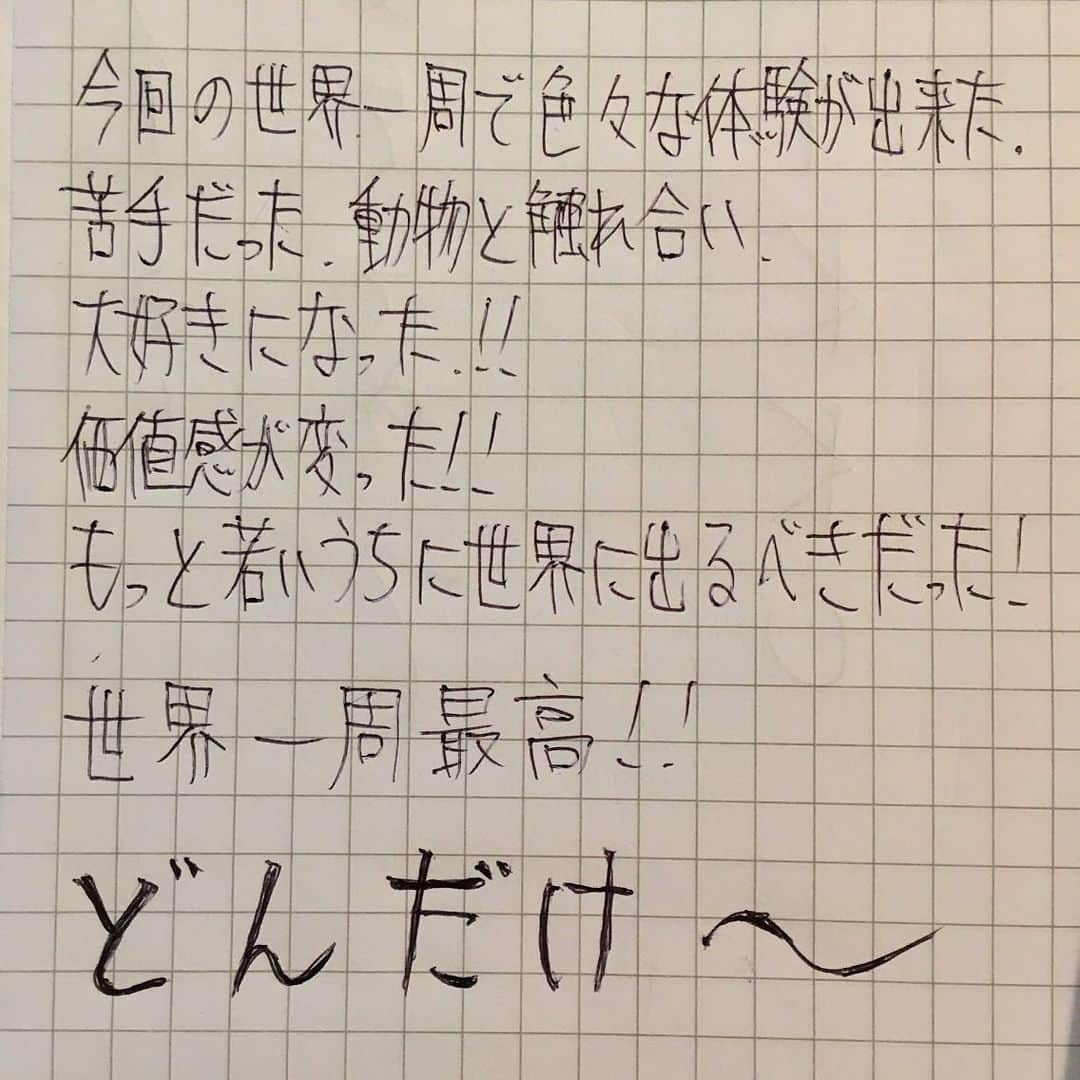 今回の世界一周で色々な体験が出来た.
苦手だった.動物と触れ合い.
大好きになった.!!
価値感が変った!!
もっと若いうちに世界に出るべきだった!
世界一周最高!!
どんだけ〜